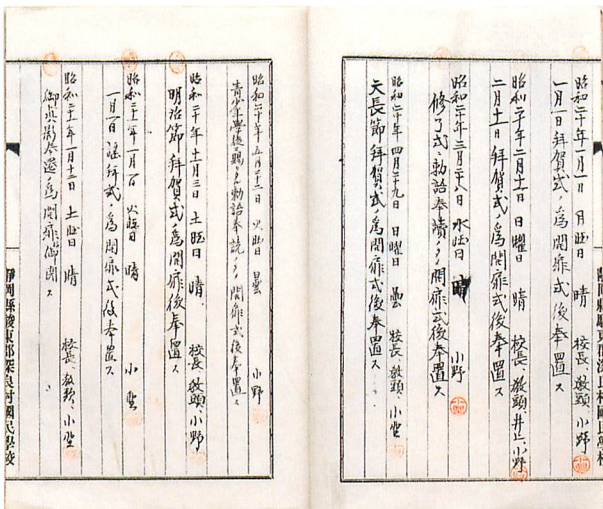 昭和二十年一月一日 月旺日 晴 校長、敎頭、小野
一月一日拜賀式ノ爲開扉式後奉置ス
昭和二十年二月十一日 日曜日 晴 校長、敎頭、井上、小野
二月十一日拜賀式ノ爲開扉式後奉置ス
昭和二十年三月二十八日 水旺日 晴 小野
修了式ニ勅語奉讀ノタメ開扉式後奉置ス
昭和二十年四月二十九日 日曜日 曇 校長、敎頭、小野
天長節拜賀式ノ爲開扉式後奉置ス
昭和二十年五月二十二日 火旺日 曇 小野
青少年學徒ニ賜ハリタル勅語奉読ノタメ開扉式後奉置ス
昭和二十年十一月三日 土旺日 晴 校長、敎頭、小野
明治節拜賀式ノ爲開扉式後奉置ス
昭和二十一年一月一日 火旺日 晴 小野
一月一日遙拜式ノ爲開扉式後奉置ス
昭和二十一年一月十二日 土旺日 晴 校長、敎頭、小野
御眞影奉還ノ爲開扉御開ス
靜岡縣駿東郡深良村國民學校